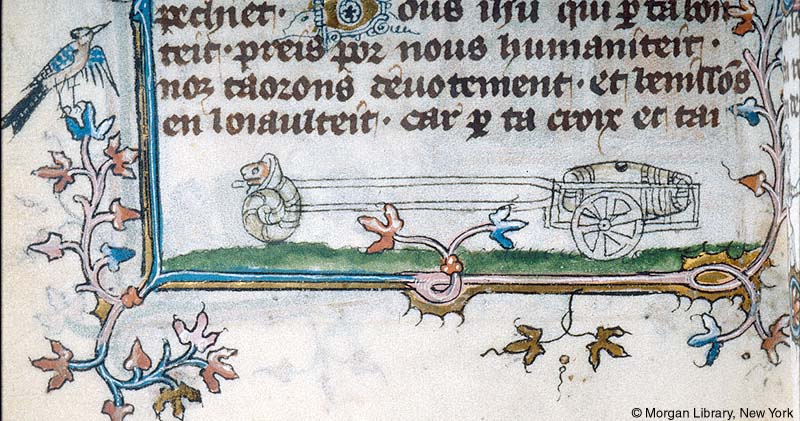 pechiet · Dous ihu qui ꝑ ta bon
teit · preis por nous humaniteit ·
noz taorons deuotement · et benissõs
en loiaulteit · car ꝑ ta croix et tai
© Morgan Library, New York